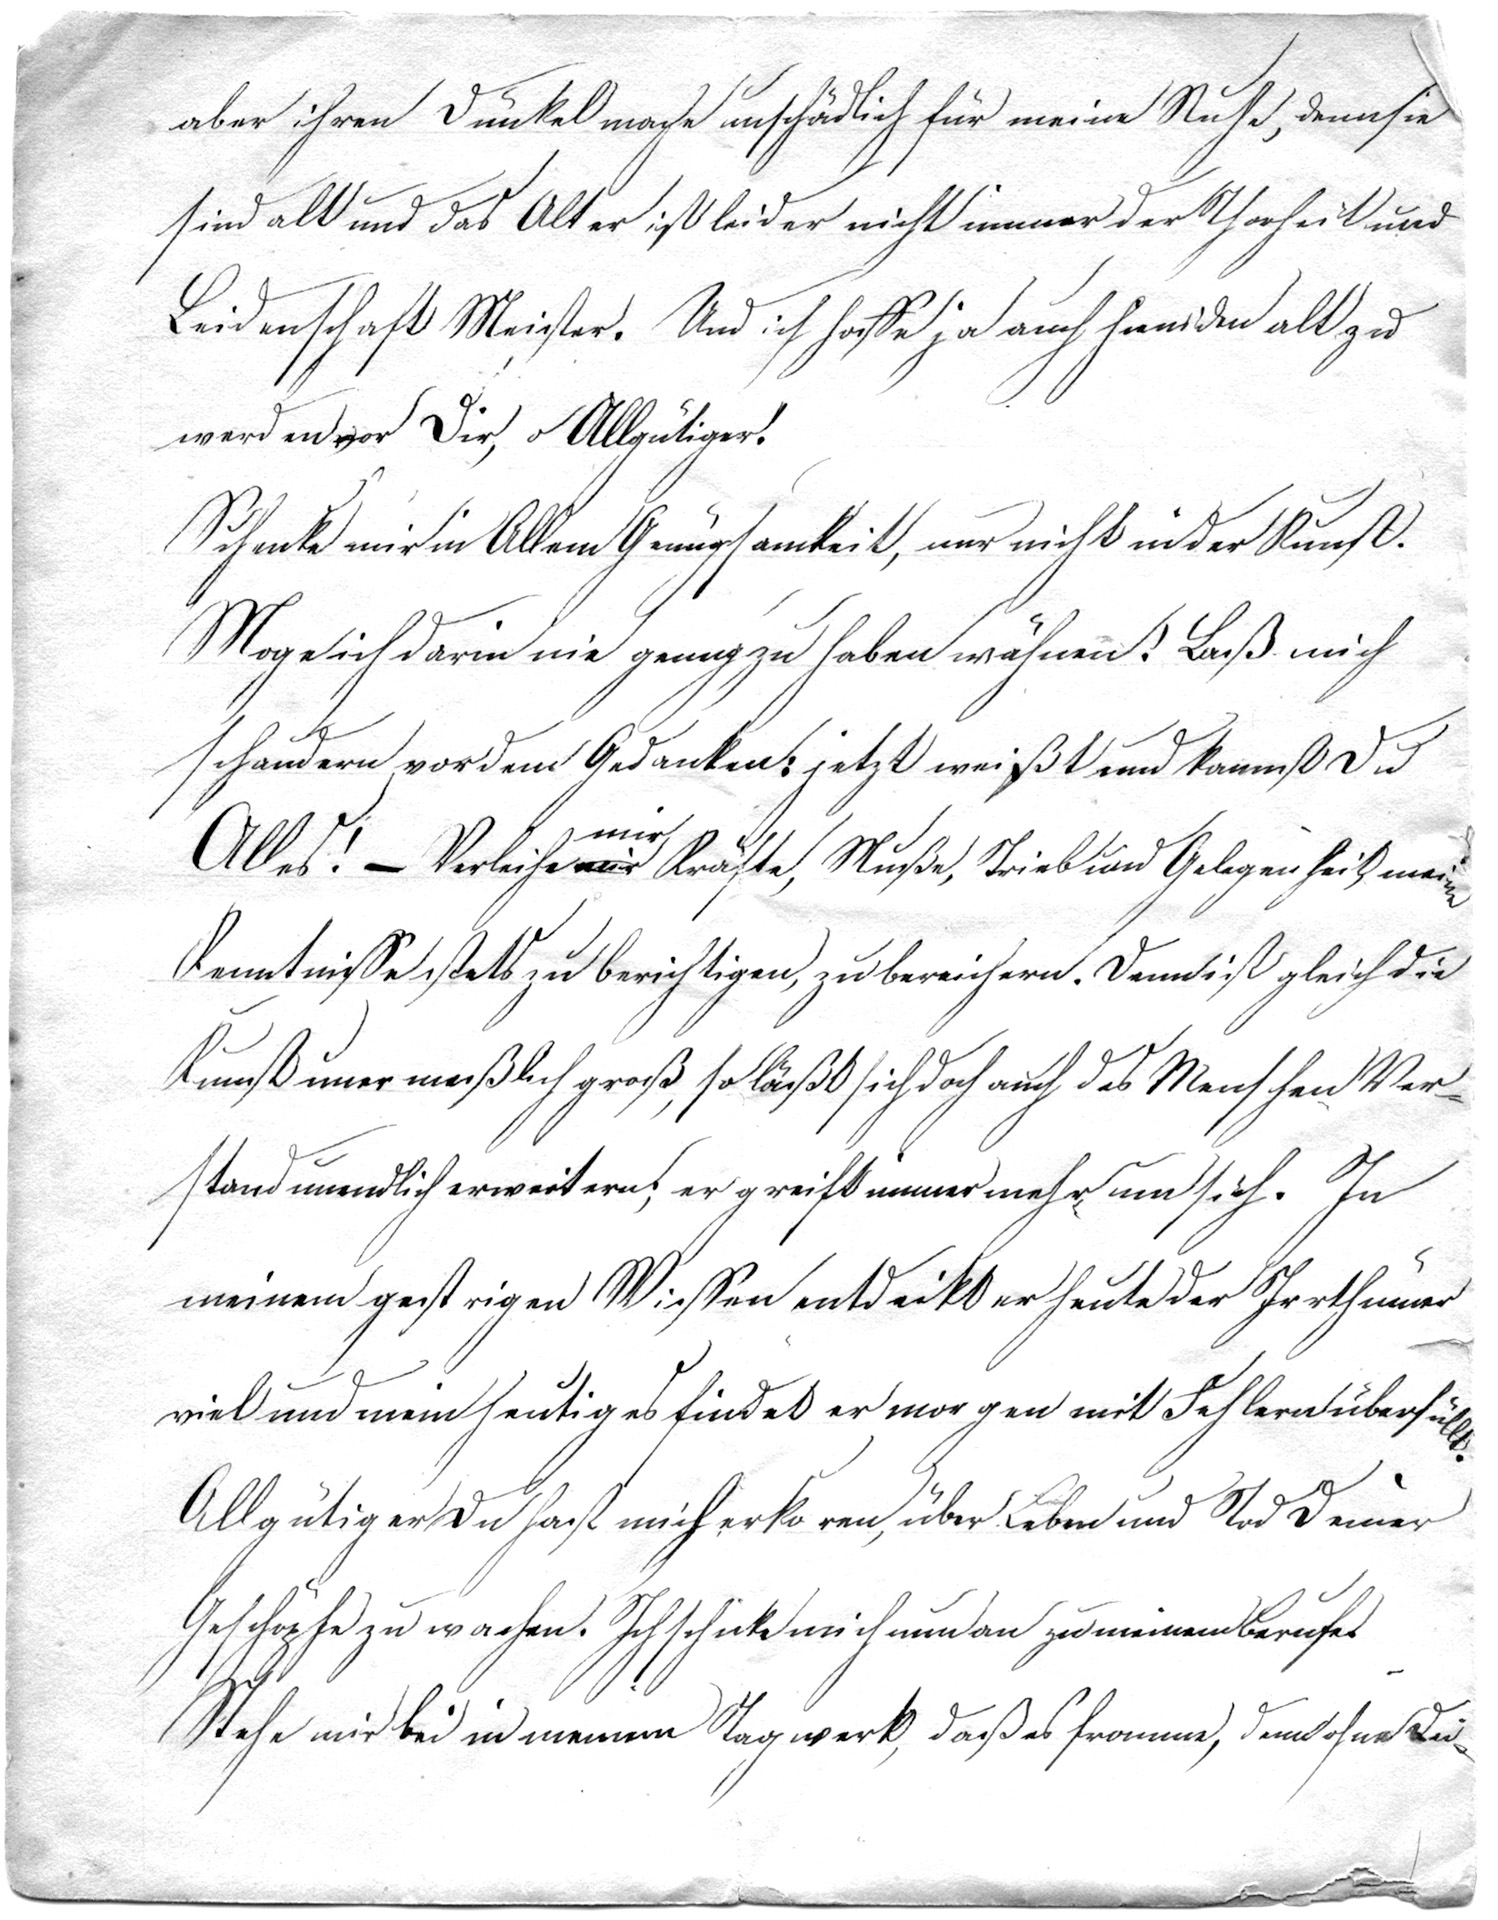 aber ihren Dünkel mache unschädlich für meine Ruhe, denn sie
sind alt und das Alter ist leider nicht immer der Thorheit und
Leidenschaft Meister. Und ich hoffe ja auch hieniden alt zu
werden vor Dir, o Allgütiger!
Schenke mir in Allem Genügsamkeit, nur nicht in der Kunst.
Möge ich darin nie genug zu haben wähnen! Laß mich
schaudern vor dem Gedanken: jetzt weißt und kannst Du
Alles! — Verleihe mir Kräfte, Muße, Trieb und Gelegenheit, meine
Kenntnisse stets zu berichtigen, zu bereichern. Denn ist gleich die
Kunst unermeßlich groß, so läßt sich doch auch des Menschen Ver-
stand unendlich erweitern; er greift immer mehr um sich. In
meinem gestrigen Wissen entdeckt er heute der Irrthümer
viel und mein heutiges findet er morgen mit Fehlern überfüllt.
Allgütiger Du hast mich erkoren, über Leben und Tod Deiner
Geschöpfe zu wachen. Ich schicke mich nun an zu meinem Berufe.
Stehe mir bei in meinem Tagwerk, daß es fromme, denn ohne Dei-